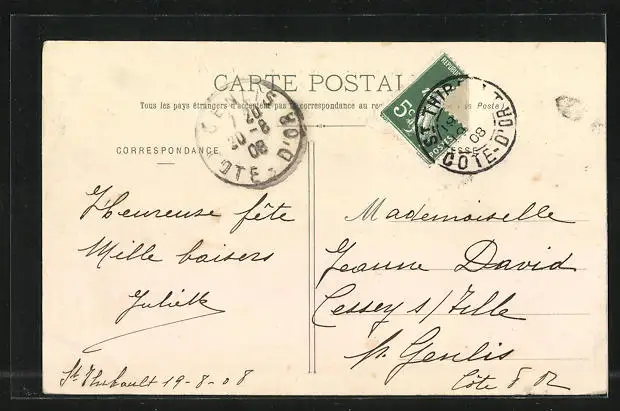 CARTE POSTAL
Tous les pays étrangers n'acceptent pas la correspondance au Poste)
CORRESPONDANCE
GENLIS
20-8
08
COTE-D'OR
5c
POSTES
ST THIBAULT
19
8
08
COTE-D'OR
Heureuse fête
Mille baisers
Juliette
St Thibault 19-8-08
Mademoiselle
Jeanne David
Cessey s/Tille
pr Genlis
Côte d'Or